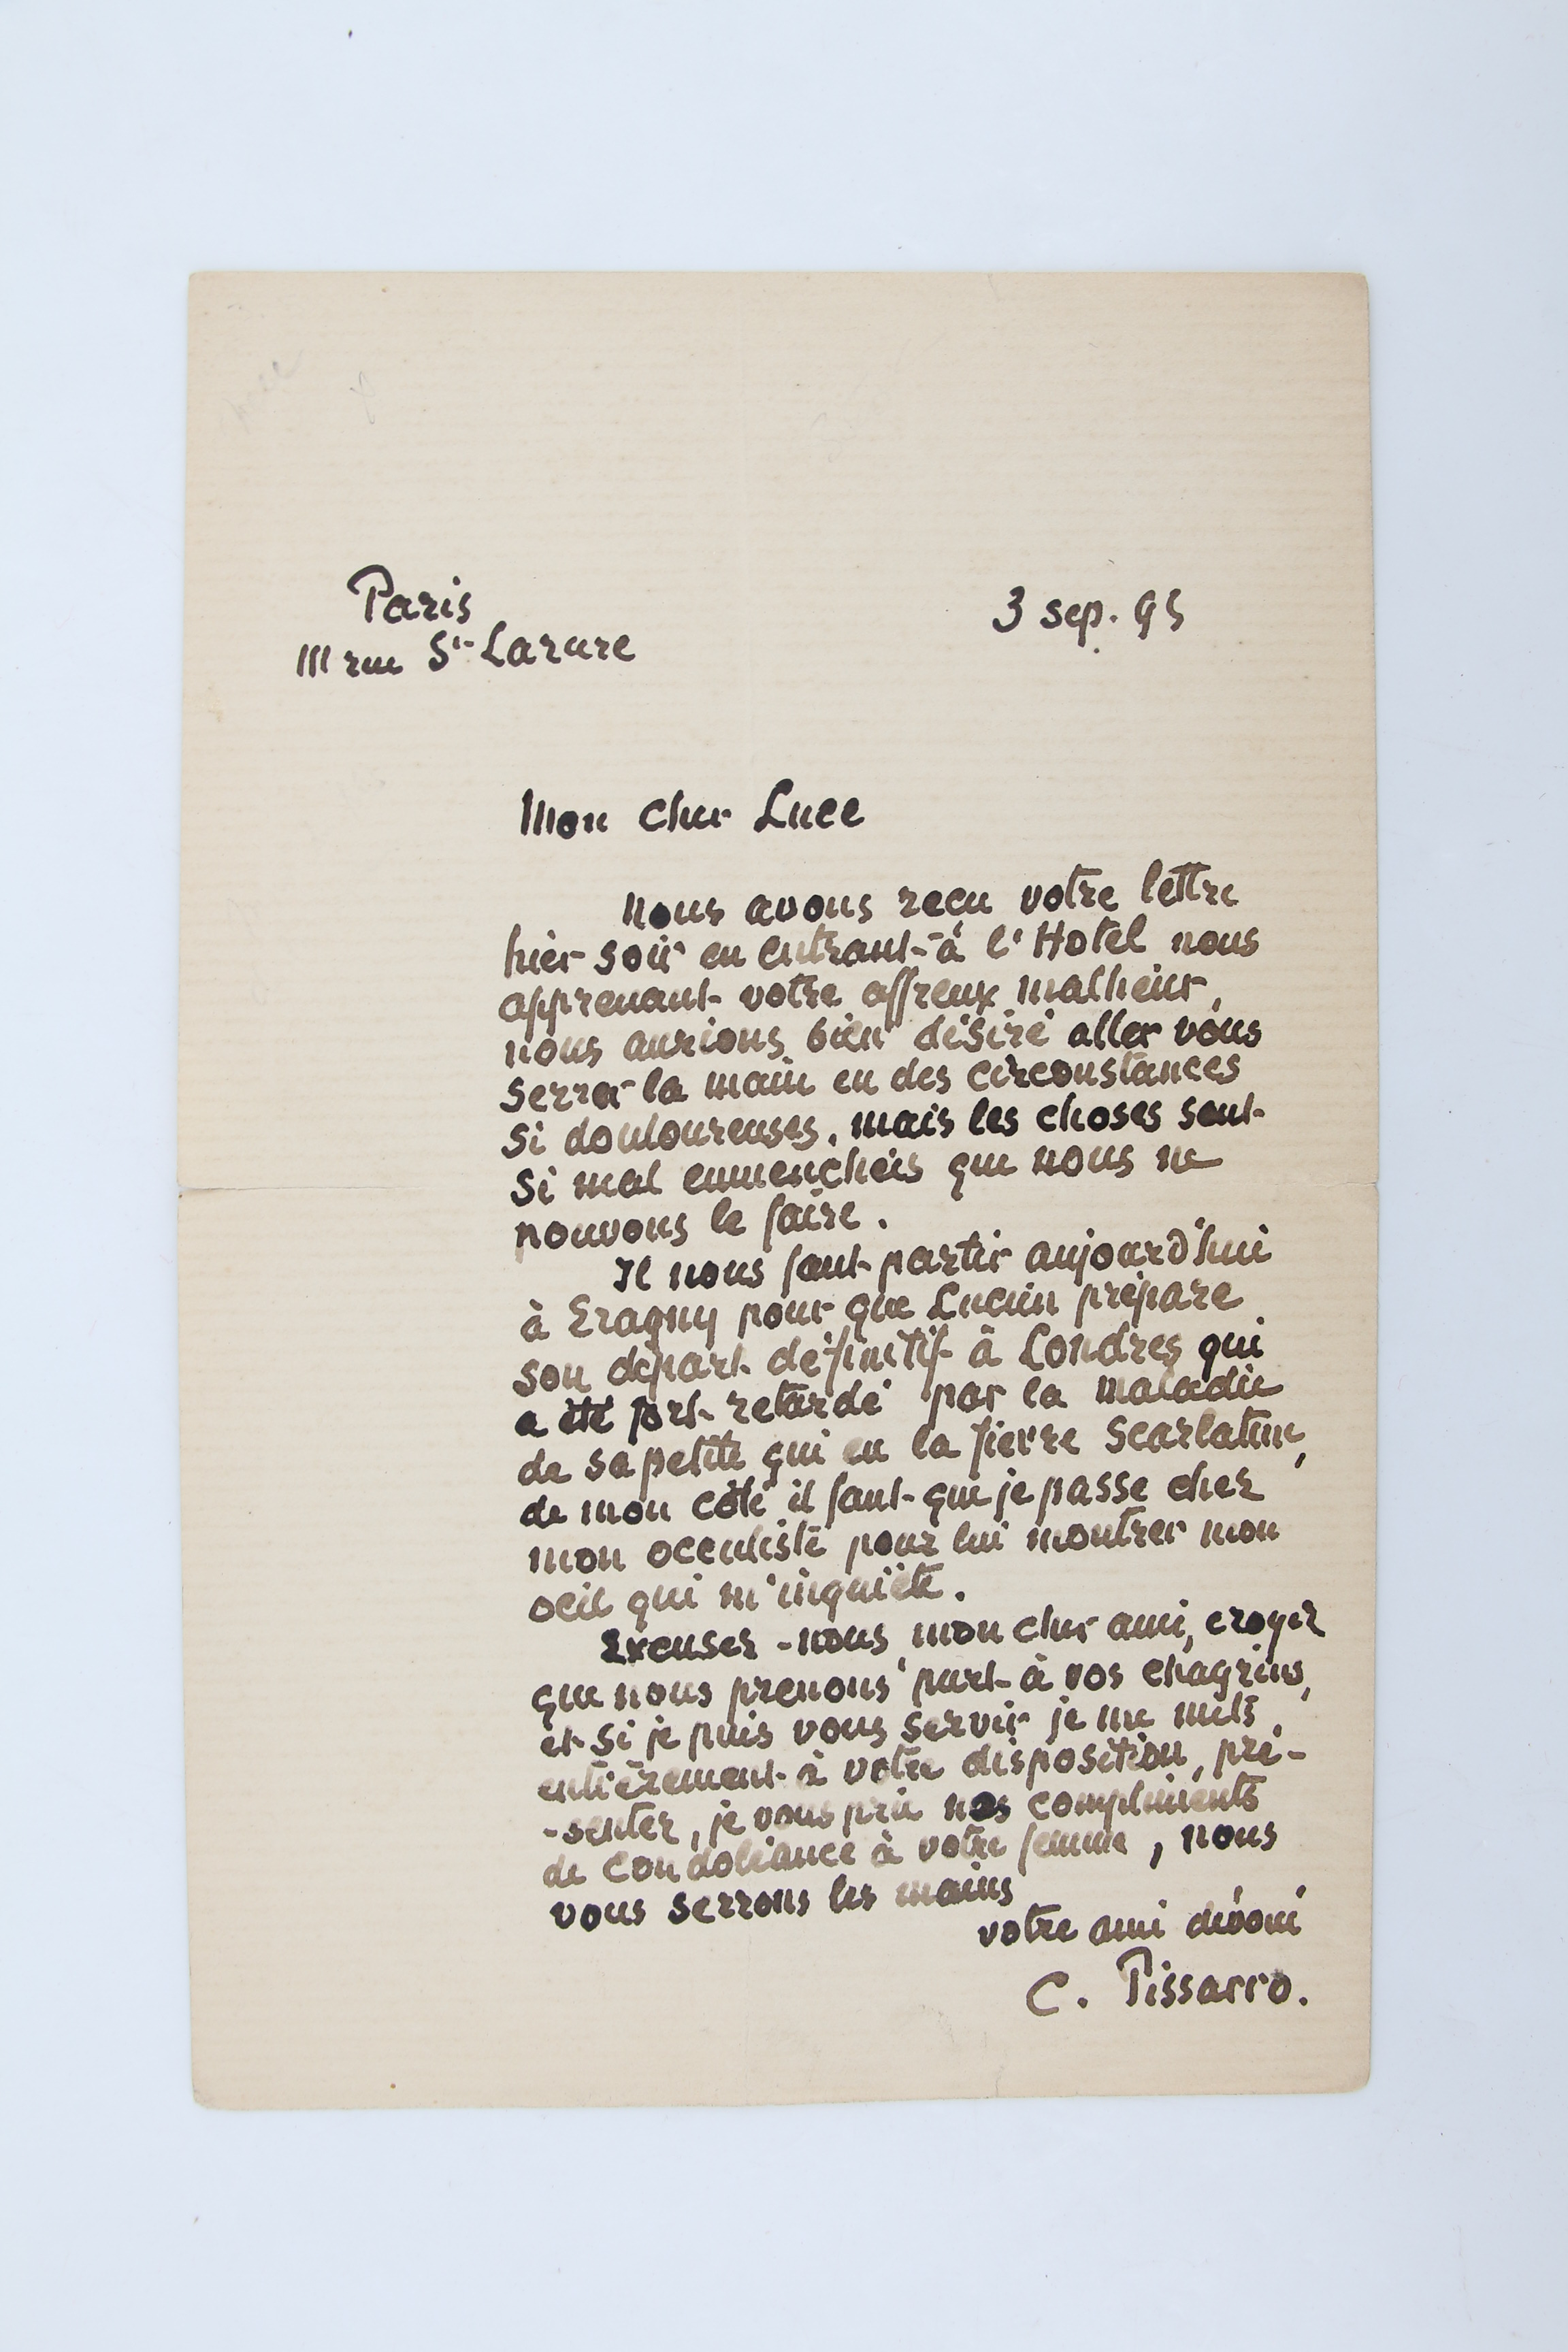 Paris
3 sep. 95
111 rue St- Lazare
Mon cher Luce
Nous avons reçu votre lettre
hier soir en entrant à l'Hotel nous
apprenant votre affreux malheur,
nous aurions bien désiré aller vous
serrer la main en des circonstances
si douloureuses, mais les choses sont
si mal emmenchéis que nous ne
pouvons le faire.
Il nous faut partir aujourd'hui
à Eragny pour que Lucien prépare
son départ définitif à Londres qui
a été fort retardé par la maladie
de sa petite qui eu la fievre scarlatine,
de mon côté il faut que je passe chez
mon occuliste pour lui montrer mon
oeil qui m'inquiète.
Excusez-nous mon cher ami, croyez
que nous prenons part à vos chagrins,
et si je puis vous servir je me mets
entièrement à votre disposition, pré-
-senter, je vous prie nos compliments
de condoleance à votre femme, nous
vous serrons les mains
votre ami dévoué
C. Pissarro.